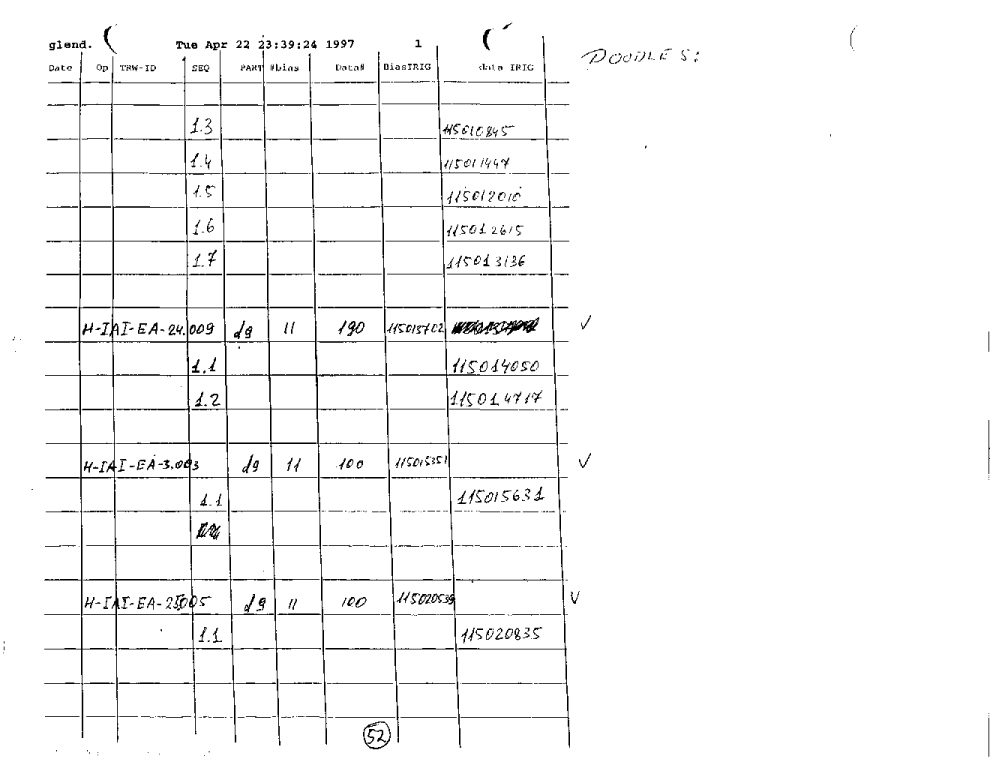 glend. Tue Apr 22 23:39:24 1997 1
DOODLES:
Date Op TRW-ID SEQ PART #bias Data# BiasIRIG data IRIG
1.3 115010845
1.4 115011447
1.5 115012010
1.6 115012615
1.7 115013136
H-IAI-EA-24.009 dg 11 190 ✓
1.1 115014050
1.2 115014717
H-IAI-EA-3.003 dg 11 100 115015351 ✓
1.1 115015631
H-IAI-EA-25005 dg 11 100 115020539 ✓
1.1 115020835
52